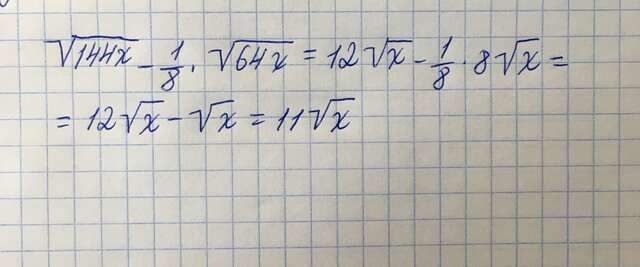 √144x - 1/8 · √64x = 12√x - 1/8 · 8√x =
= 12√x - √x = 11√x